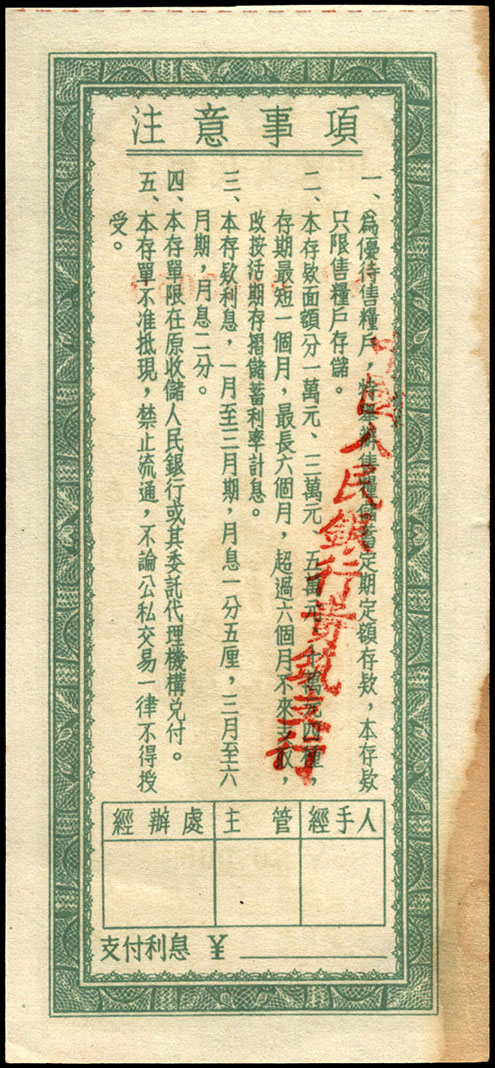 注意事項
一、為優待售糧戶，特舉辦售糧儲蓄定期定額存欵，本存欵
只限售糧戶存儲。
二、本存欵面額分一萬元、三萬元、五萬元、十萬元四種，
存期最短一個月，最長六個月，超過六個月不來支取，
改按活期存摺儲蓄利率計息。
三、本存欵利息，一月至三月期，月息一分五厘，三月至六
月期，月息二分。
四、本存單限在原收儲人民銀行或其委託代理機構兌付。
五、本存單不准抵現，禁止流通，不論公私交易一律不得授
受。
中國人民銀行貴筑支行
經辦處 主管 經手人
支付利息 ¥